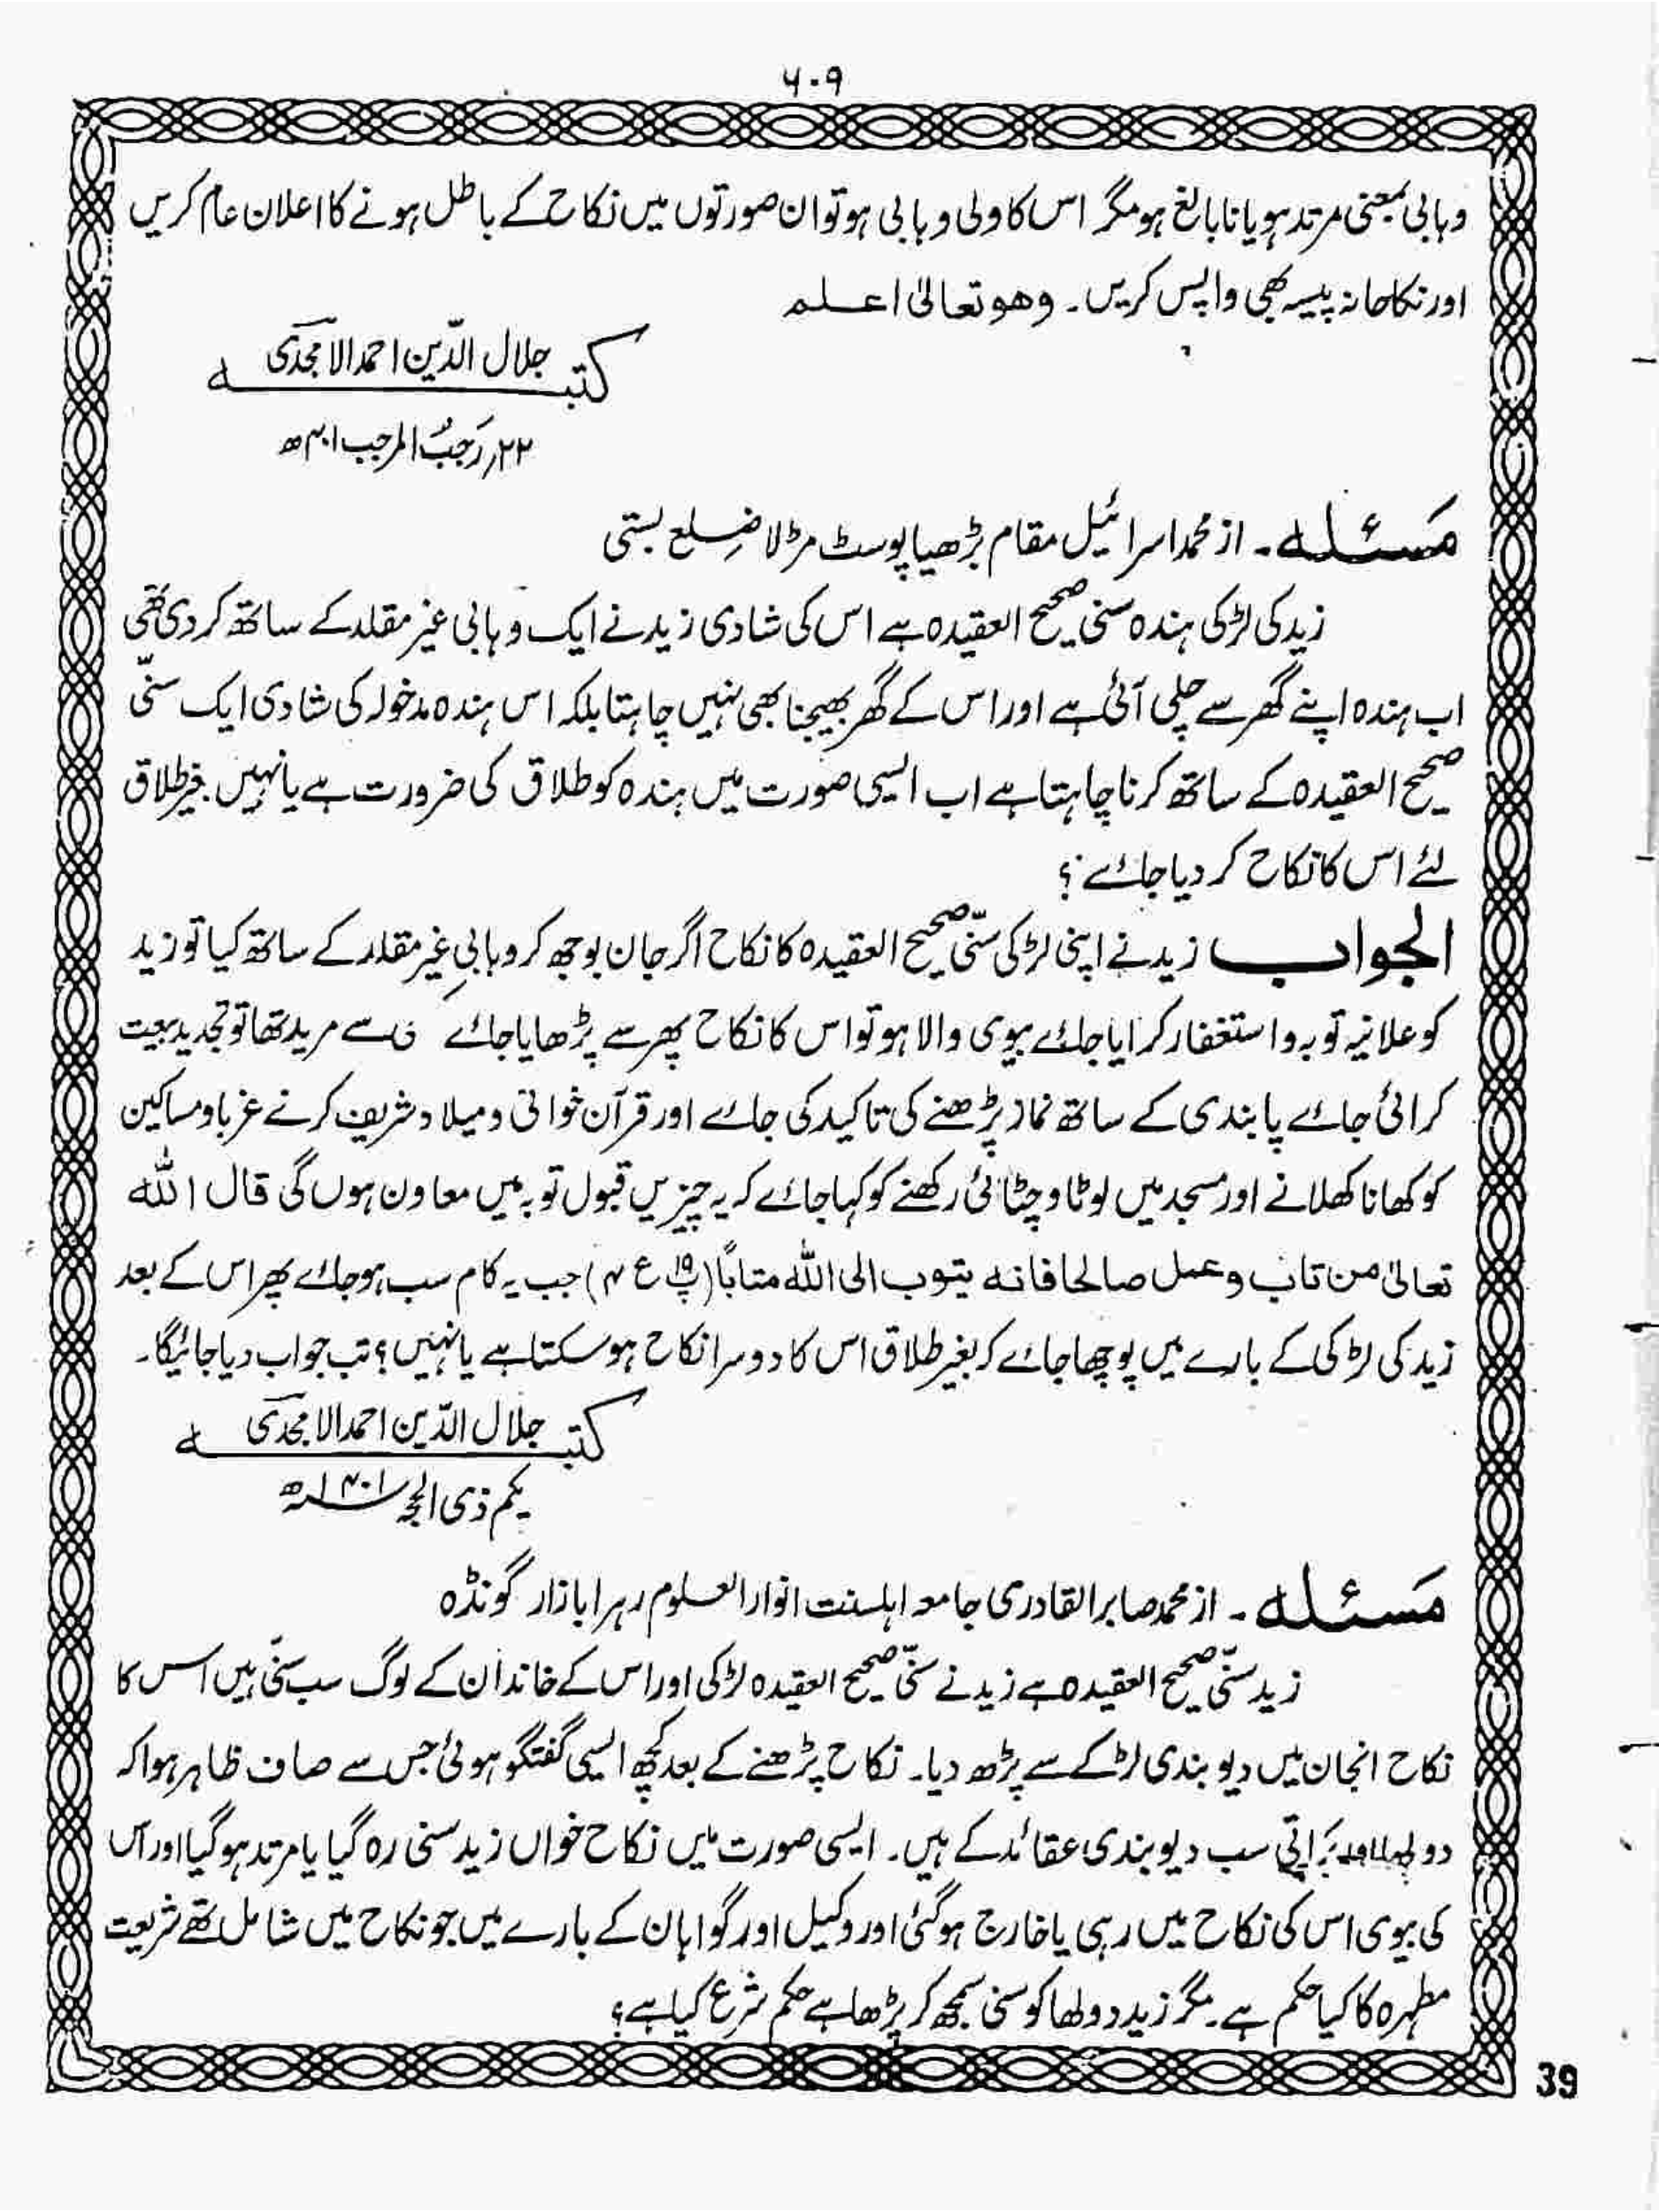 ۶۰۹
وہابی بمعنی مرتد ہو یا نابالغ ہو مگر اس کا ولی وہابی ہو تو ان صورتوں میں نکاح کے باطل ہونے کا اعلان عام کریں
اور نکاحانہ پیسہ بھی واپس کریں۔ وھو تعالیٰ اعلم
کتبہ جلال الدّین احمد الامجدی
۲۲؍ رَجَبُ المرجب ۱۴۰۱ھ
مسئلہ۔ از محمد اسرائیل مقام بڑھیا پوسٹ مڑلا ضلع بستی
زید کی لڑکی ہندہ سنی صحیح العقیدہ ہے اس کی شادی زید نے ایک وہابی غیر مقلد کے ساتھ کر دی تھی
اب ہندہ اپنے گھر سے چلی آئی ہے اور اس کے گھر بھیجنا بھی نہیں چاہتا بلکہ اس ہندہ مدخولہ کی شادی ایک سنّی
صحیح العقیدہ کے ساتھ کرنا چاہتا ہے اب ایسی صورت میں ہندہ کو طلاق کی ضرورت ہے یا نہیں بغیر طلاق
لئے اس کا نکاح کر دیا جائے؟
الجواب زید نے اپنی لڑکی سنّی صحیح العقیدہ کا نکاح اگر جان بوجھ کر وہابیِ غیر مقلد کے ساتھ کیا تو زید
کو علانیہ توبہ و استغفار کرایا جائے بیوی والا ہو تو اس کا نکاح پھر سے پڑھایا جائے سے مرید تھا تو تجدید بیعت
کرائی جائے پابندی کے ساتھ نماز پڑھنے کی تاکید کی جائے اور قرآن خوانی و میلاد شریف کرنے غربا و مساکین
کو کھانا کھلانے اور مسجد میں لوٹا و چٹائی رکھنے کو کہا جائے کہ یہ چیزیں قبول توبہ میں معاون ہوں گی قال اللہ
تعالیٰ من تاب و عمل صالحا فانه یتوب الی اللہ متابًا (پ۱۹ ع ۴) جب یہ کام سب ہو جائے پھر اس کے بعد
زید کی لڑکی کے بارے میں پوچھا جائے کہ بغیر طلاق اس کا دوسرا نکاح ہو سکتا ہے یا نہیں؟ تب جواب دیا جائیگا۔
کتبہ جلال الدّین احمد الامجدی
یکم ذی الحجہ ۱۴۰۱ھ
مسئلہ۔ از محمد صابر القادری جامعہ اہلسنت انوار العلوم رہرا بازار گونڈہ
زید سنّی صحیح العقیدہ ہے زید نے سنّی صحیح العقیدہ لڑکی اور اس کے خاندان کے لوگ سب سنّی ہیں اس کا
نکاح انجان میں دیوبندی لڑکے سے پڑھ دیا۔ نکاح پڑھنے کے بعد کچھ ایسی گفتگو ہوئی جس سے صاف ظاہر ہوا کہ
دولہا اور براتی سب دیوبندی عقائد کے ہیں۔ ایسی صورت میں نکاح خواں زید سنی رہ گیا یا مرتد ہو گیا اور اس
کی بیوی اس کی نکاح میں رہی یا خارج ہو گئی اور وکیل اور گواہان کے بارے میں جو نکاح میں شامل تھے شریعت
مطہرہ کا کیا حکم ہے۔ مگر زید دولھا کو سنی سمجھ کر پڑھا ہے حکم شرع کیا ہے؟
39